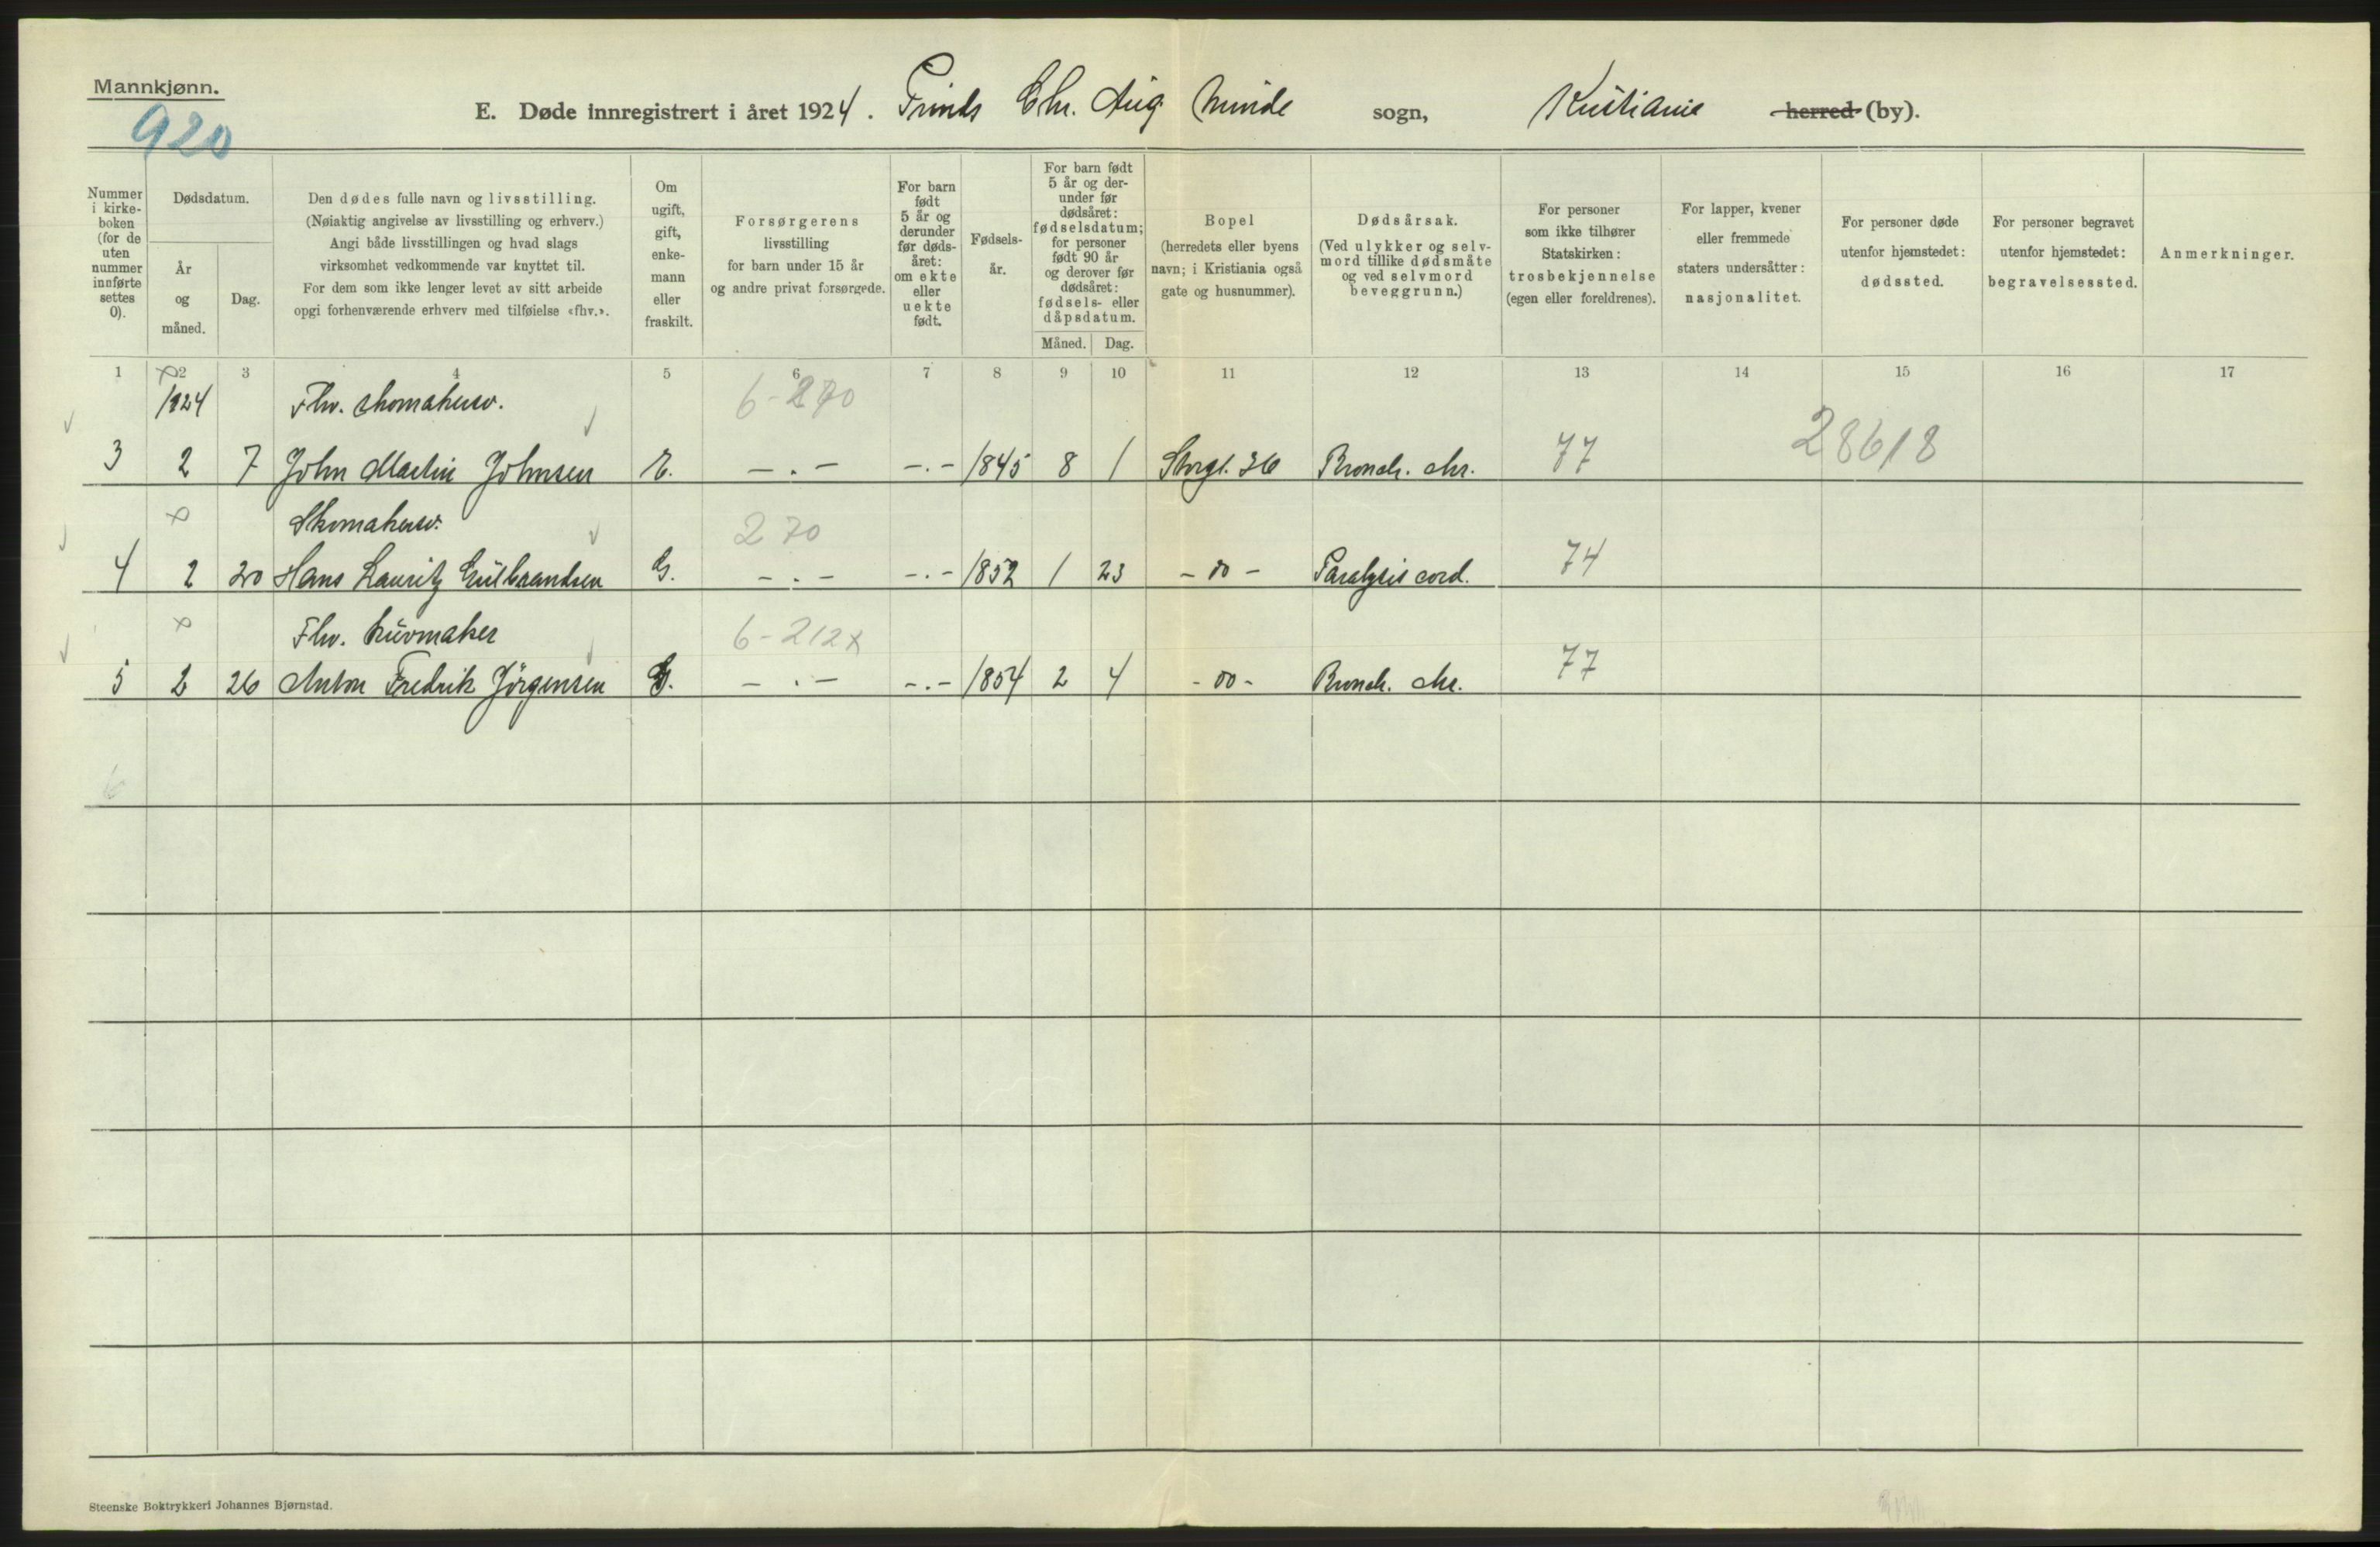 Mannkjønn.
920
E. Døde innregistrert i året 1924. Prinds Chr. Aug. Minde sogn, Kristiania herred (by).
Nummer i kirke-boken (for de uten nummer innførte settes 0).
Dødsdatum.
År og måned.
Dag.
Den dødes fulle navn og livsstilling.
(Nøiaktig angivelse av livsstilling og erhverv.)
Angi både livsstillingen og hvad slags
virksomhet vedkommende var knyttet til.
For dem som ikke lenger levet av sitt arbeide
opgi forhenværende erhverv med tilføielse «fhv.».
Om ugift, gift, enke-mann eller fraskilt.
Forsørgerens
livsstilling
for barn under 15 år
og andre privat forsørgede.
For barn født 5 år og derunder før døds-året: om ekte eller uekte født.
Fødsels-år.
For barn født 5 år og der-under før dødsåret: fødselsdatum; for personer født 90 år og derover før dødsåret: fødsels- eller dåpsdatum.
Måned.
Dag.
Bopel
(herredets eller byens
navn; i Kristiania også
gate og husnummer).
Dødsårsak.
(Ved ulykker og selv-
mord tillike dødsmåte
og ved selvmord
beveggrunn.)
For personer
som ikke tilhører
Statskirken:
trosbekjennelse
(egen eller foreldrenes).
For lapper, kvener
eller fremmede
staters undersåtter:
nasjonalitet.
For personer døde
utenfor hjemstedet:
dødssted.
For personer begravet
utenfor hjemstedet:
begravelsessted.
Anmerkninger.
1 2 3 4 5 6 7 8 9 10 11 12 13 14 15 16 17
1924 Fhv. skomakersv. 6-270
3 2 7 John Martin Johnsen E. -.- -.- 1845 8 1 Storgt. 36 Bronch. chr. 77 28618
Skomakersv. 270
4 2 20 Hans Lauritz Gulbrandsen G. -.- -.- 1852 1 23 -oo- Paralysis cord. 74
Fhv. huvmaker 6-212x
5 2 26 Anton Fredrik Jörgensen G. -.- -.- 1854 2 4 -oo- Bronch. chr. 77
6
Steenske Boktrykkeri Johannes Bjørnstad.